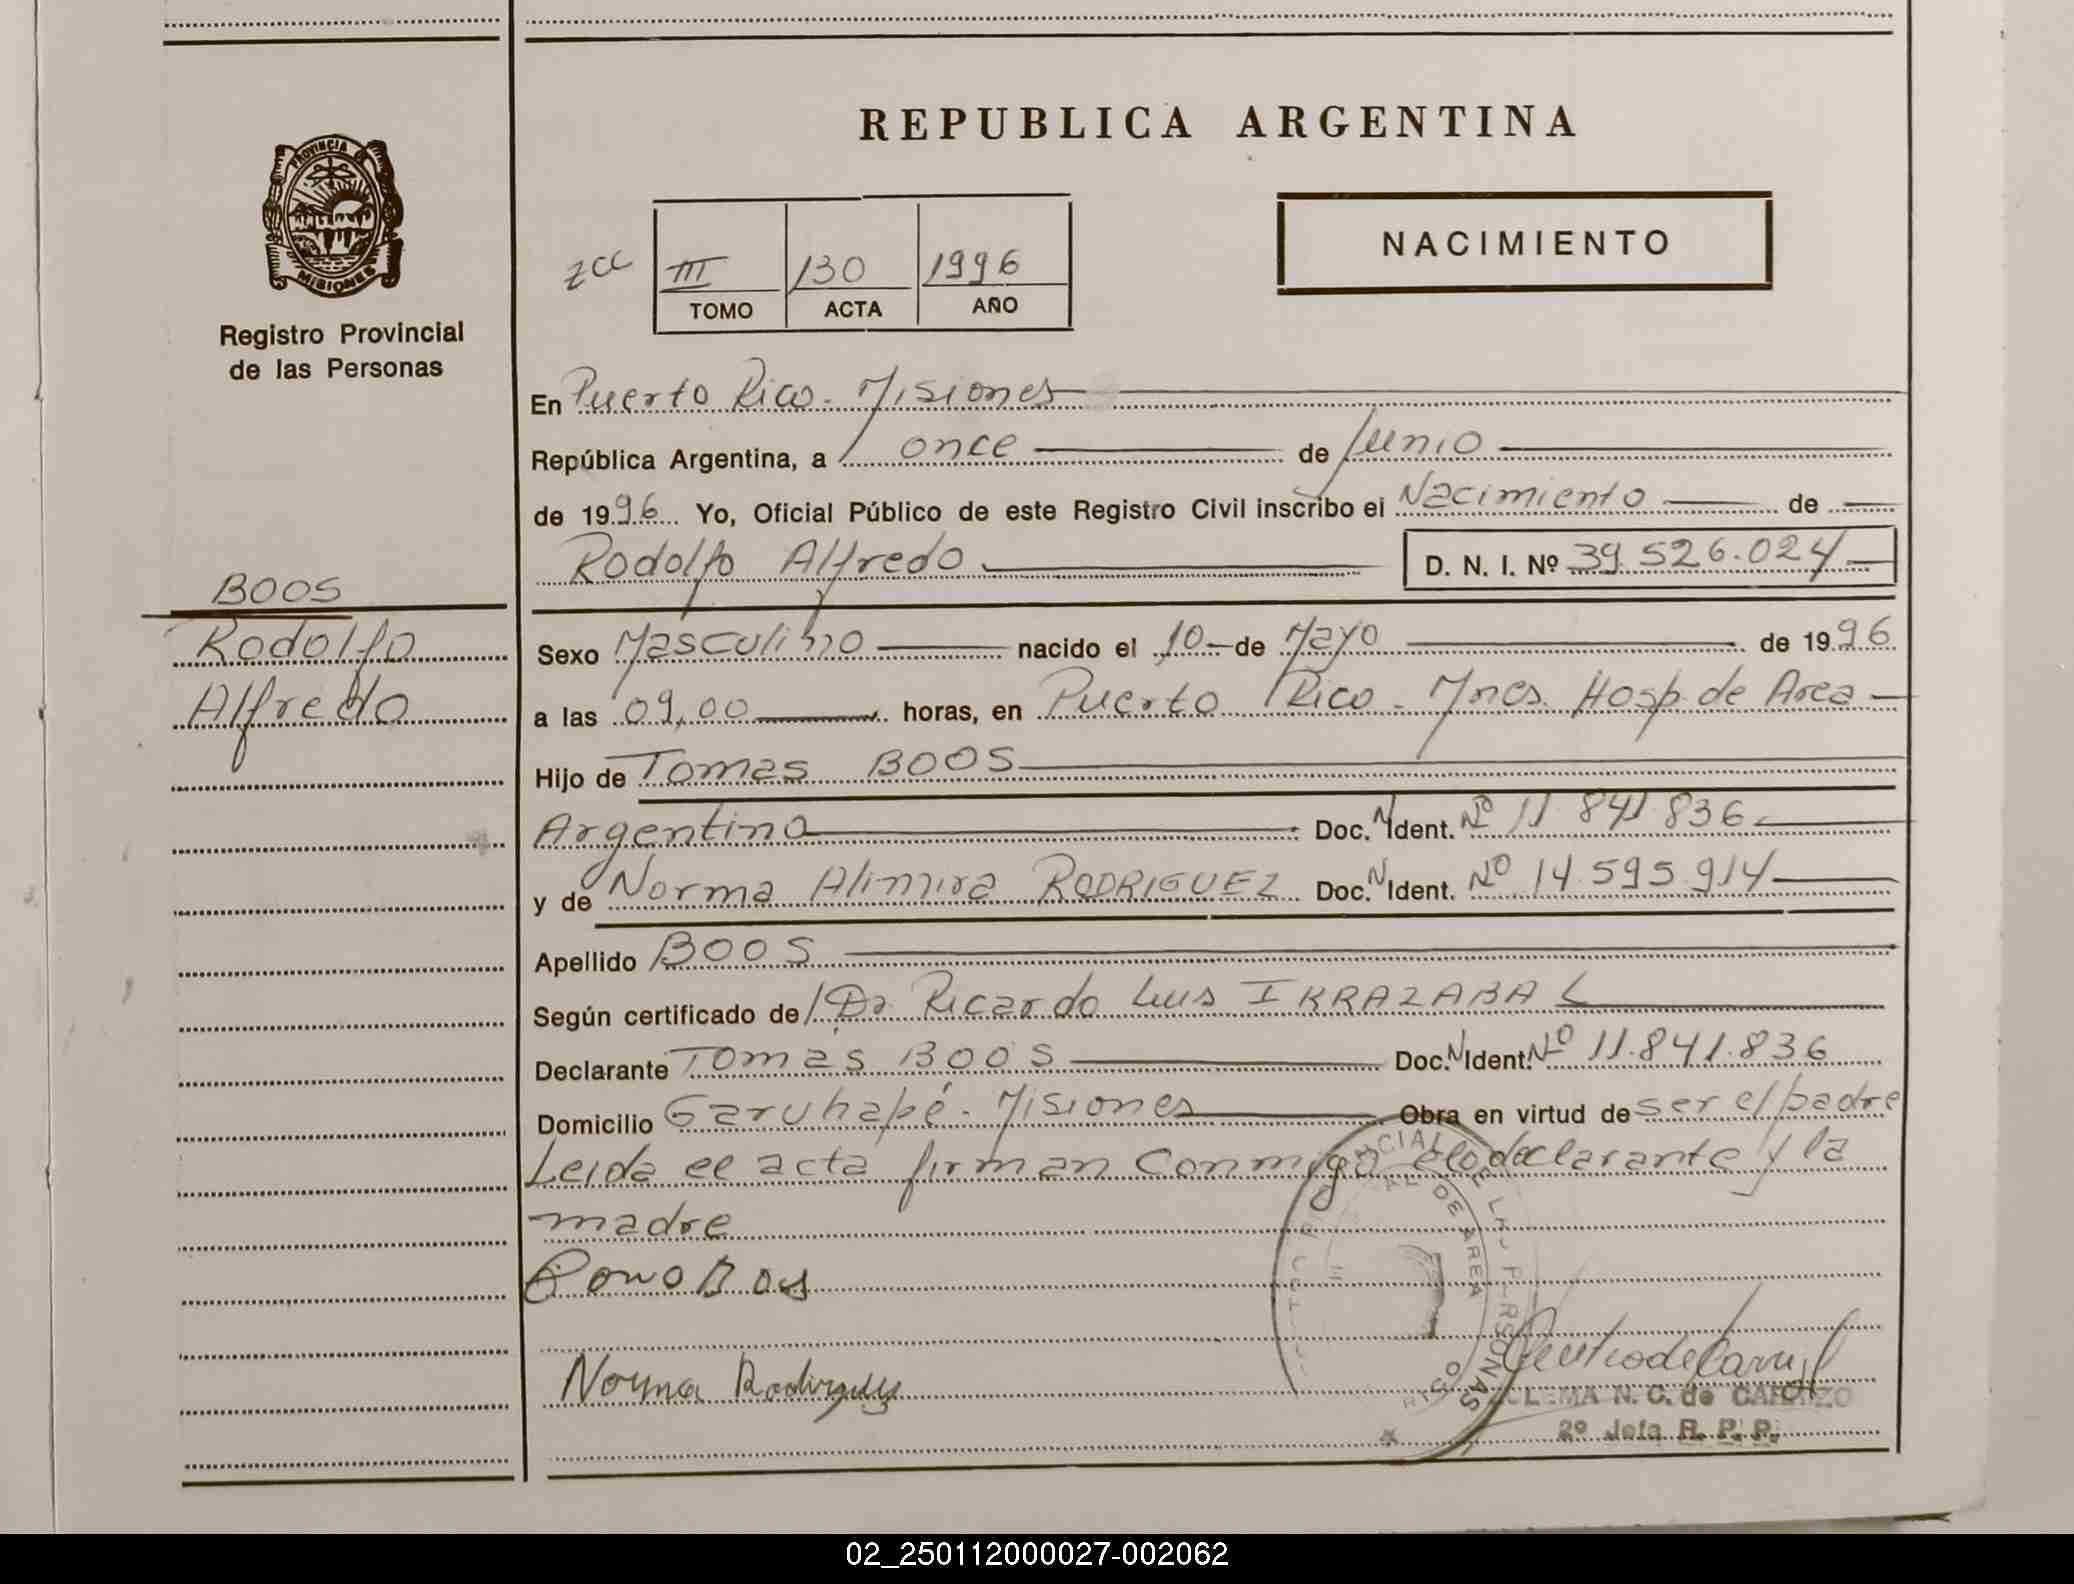 REPUBLICA ARGENTINA
PROVINCIA DE
MISIONES
Registro Provincial
de las Personas
NACIMIENTO
III 130 1996
TOMO ACTA AÑO
En Puerto Rico - Misiones
República Argentina, a once de Junio
de 1996 Yo, Oficial Público de este Registro Civil inscribo el Nacimiento de
Rodolfo Alfredo D. N. I. Nº 39.526.024
BOOS
Rodolfo
Alfredo
Sexo Masculino nacido el 10 de Mayo de 1996
a las 09,00 horas, en Puerto Rico - Mnes. Hosp. de Area
Hijo de Tomas BOOS
Argentino Doc. N Ident. Nº 11.841.836
y de Norma Almira RODRIGUEZ Doc. N Ident. Nº 14.595.914
Apellido BOOS
Según certificado de Dr Ricardo Luis IKRAZABAL
Declarante Tomás BOOS Doc. N Ident. Nº 11.841.836
Domicilio Garuhapé - Misiones Obra en virtud de ser el padre
Leida el acta firman conmigo el declarante y la
madre
Norma Rodriguez
N. C. de CARDOZO
2º Jefa R. P. P.
02_250112000027-002062